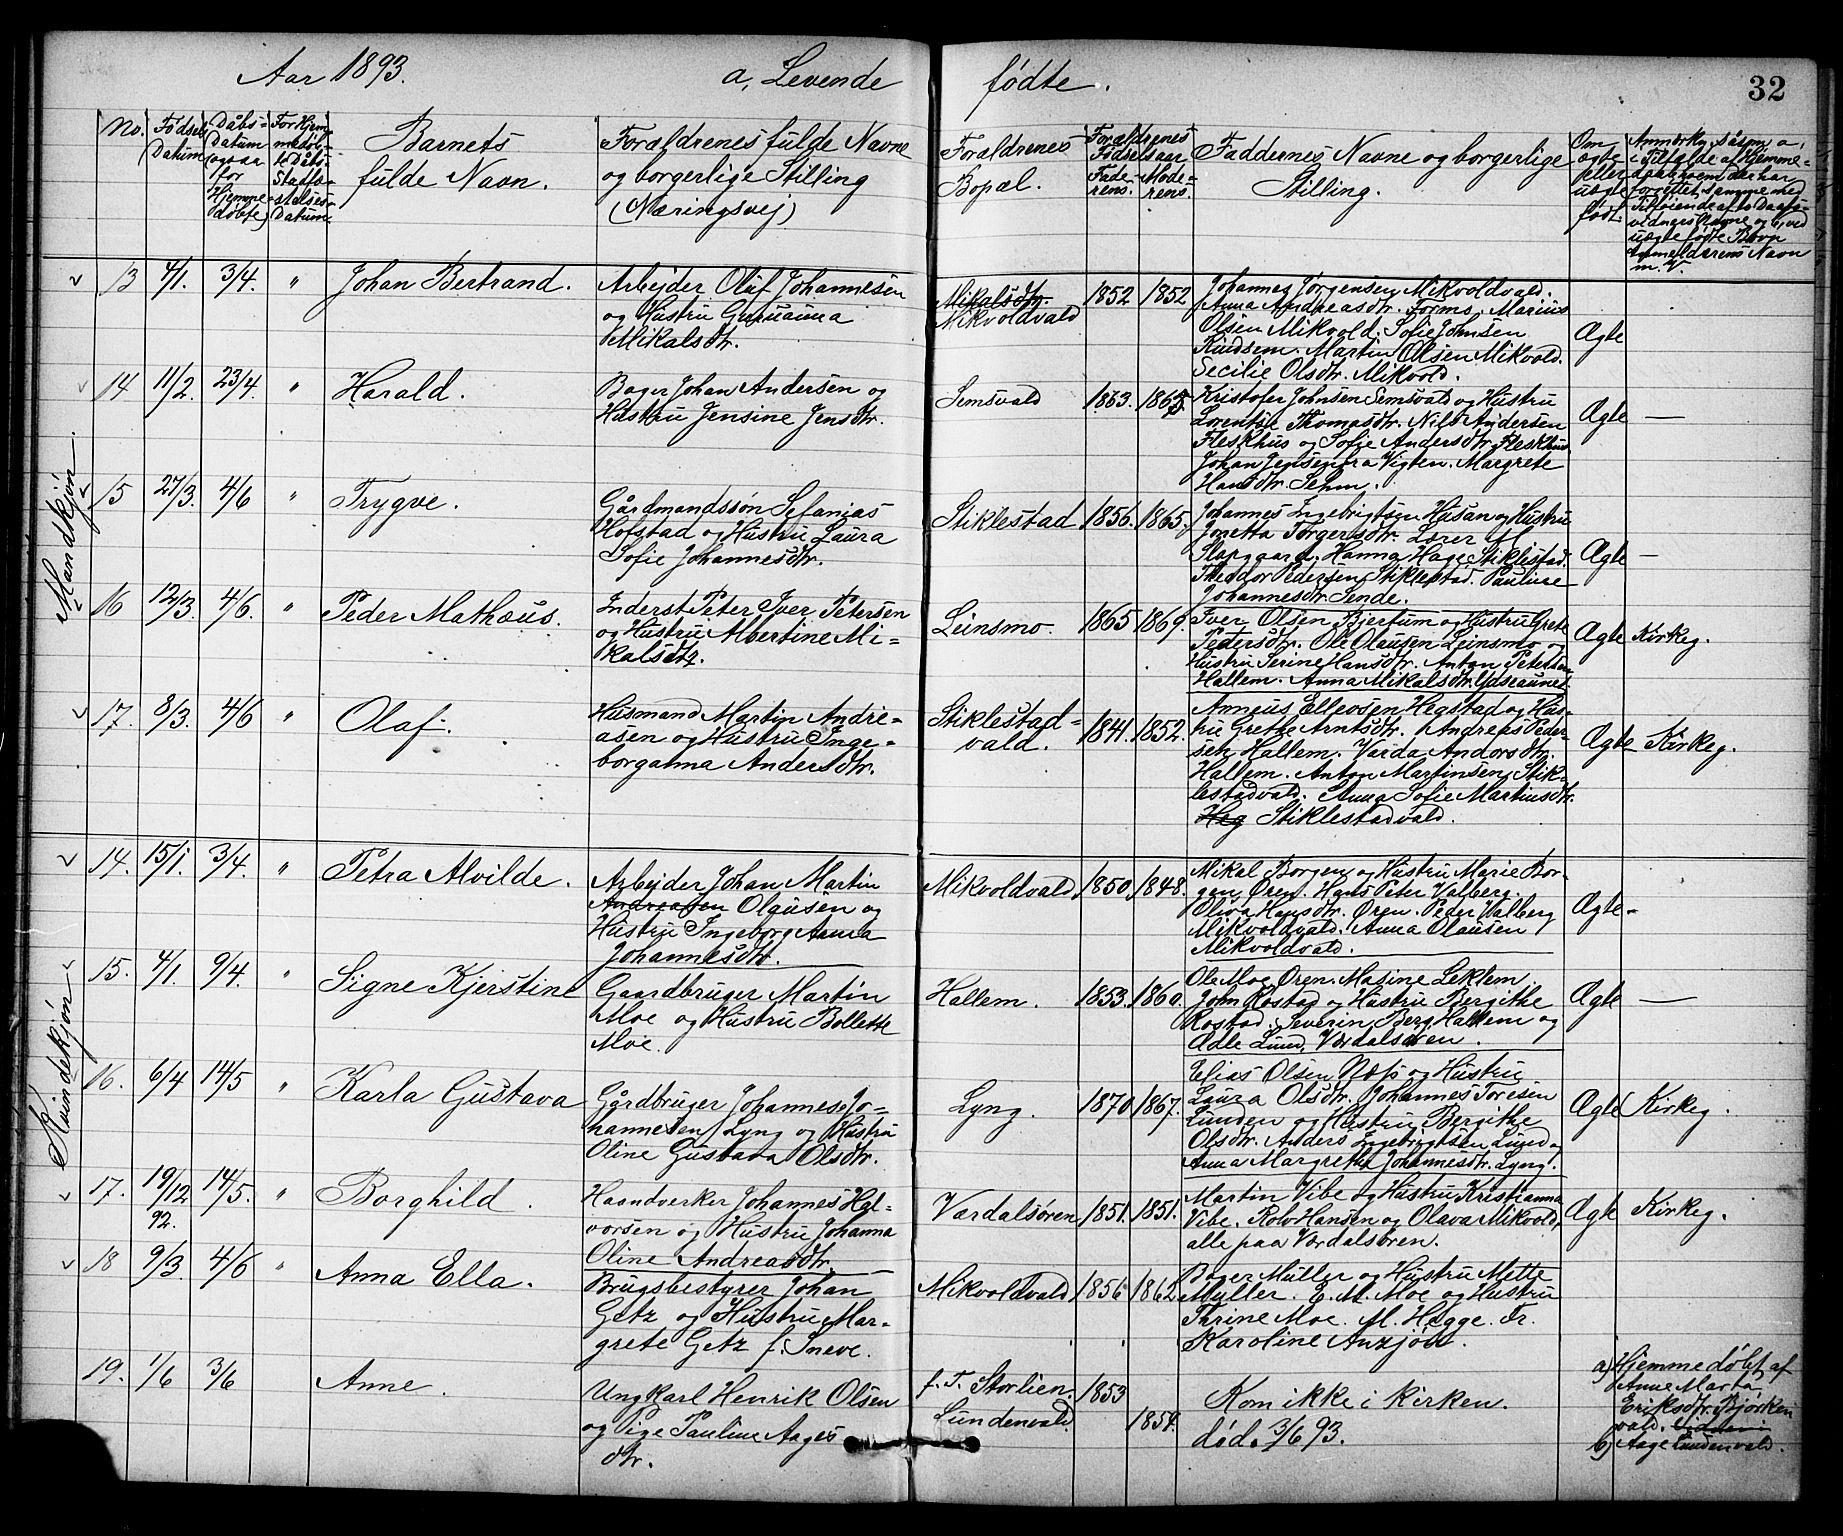 Aar 1893. a, Levende fødte. 32
No.
Fødsels Datum
Dåbs-
Datum
(ogsaa
for
Hjemme-
døbte)
For Hjem-
medøb-
te Dåbs-
Stadfæ-
stelses-
Datum.
Barnets
fulde Navn.
Forældrenes fulde Navne
og borgerlige Stilling
(Næringsvej)
Forældrenes
Bopæl.
Forældrenes
Fødselsaar
Fade-
rens. Mode-
rens.
Faddernes Navne og borgerlige
Stilling.
Om
ægte
eller
uægte
født.
Anmærkn. såsom, a,
i Tilfælde af Hjemme-
dåb, hvem der har
forrettet samme med
Tilføiende af to Daabs-
vidners Navne og b, ved
uægte fødte Børn
Anmelderens Navn
m. V.
Mandkjøn.
13 4/1. 3/4. " Johan Bertrand.
Arbejder Oluf Johannesen
og Hustru Guruanna
Mikalsdtr.
Mikalsdtr.
Mikvoldvald
1852 1852
Johannes Jørgensen Mikvoldvald.
Anna Andreasdtr. Formo, Marius
Olsen Mikvold. Sofie Johnsen
Kindsem. Martin Olsen Mikvold.
Secilie Olsdtr. Mikvold.
Ægte
14 11/2. 23/4. " Harald.
Bager Johan Andersen og
Hustru Jensine Jensdtr.
Semsvald 1863. 1865.
Kristofer Johnsen Semsvald og Hustru
Lorentse Thomasdtr. Nils Andersen
Fleskhus og Sofie Andersdtr. Fleskhus
Johan Jensen fra Vigten. Margrete
Hansdtr. Sehm.
Ægte —
15 27/3. 4/6 " Trygve.
Gårdmandssøn Sefanias
Hofstad og Hustru Laura
Sofie Johannesdtr.
Stiklestad 1856. 1865.
Johannes Ingebrigtsen Husan og Hustru
Jonetta Torgersdtr. Lærer M
Slapgaard. Hanna Hage Stiklestad.
Theodor Pedersen Stiklestad. Pauline
Johannesdtr. Sende.
Ægte —
16 12/3. 4/6. " Peder Mathæus.
Inderst Peter Iver Petersen
og Hustru Albertine Mi-
kalsdtr.
Leinsmo. 1865 1869.
Iver Olsen Bjertum og Hustru Grete
Pedersdtr. Ole Olausen Leinsmo og
Hustru Serine Hansdtr. Anton Petersen
Hallem. Anna Mikalsdtr.
Ægte Kirkeg.
17. 8/3. 4/6 " Olaf.
Husmand Martin Andre-
asen og Hustru Inge-
borganna Andersdtr.
Stiklestad-
vald. 1841. 1852.
Anneus Ellevsen Hegstad og Hus-
tru Grethe Arntsdtr. Andreas Peder-
sen Hallem. Varda Andorsdtr.
Hallem. Anton Martinsen, Stik-
lestadvald. Anna Sofie Martinsdtr.
Heg Stiklestadvald.
Ægte Kirkeg.
Kvindekjøn
14. 15/1. 3/4. " Petra Alvilde.
Arbejder Johan Martin
Andreassen Olausen og
Hustru Ingeborg Anna
Johannesdtr.
Mikvoldvald 1850. 1848.
Mikal Borgen og Hustru Marie Bor-
gen Øren. Hans Peter Valberg.
Oliva Hansdtr. Øren. Peder Valberg
Mikvoldvald. Anna Olausen
Mikvoldvald.
Ægte -
15. 4/1. 9/4. " Signe Kjerstine
Gaardbruger Martin
Moe og Hustru Bollette
Moe.
Hallem. 1853. 1860.
Ole Moe Øren. Masine Leklem.
John Rostad og Hustru Bergithe
Rostad. Severin Berg Hallem og
Adle Lund, Værdalsøren.
Ægte —
16. 6/4 14/5 " Karla Gustava
Gårdbruger Johannes Jo-
hannesen Lyng og Hustru
Oline Gustava Olsdtr.
Lyng. 1870. 1867.
Elias Olsen Næss og Hustru
Laura Olsdtr. Johannes Toresen
Lunden og Hustru Bergithe
Olsdtr. Anders Ingebrigtsen Lund og
Anna Margrethe Johannesdtr. Lyng.
Ægte Kirkeg.
17. 19/12 92. 14/5. " Borghild.
Haandverker Johannes Hal-
vorsen og Hustru Johanna
Oline Andreasdtr.
Værdalsøren 1851. 1851.
Martin Vibe og Hustru Kristianna
Vibe. Rolv Hansen og Olava Mikvold,
alle paa Værdalsøren.
Ægte Kirkeg.
18 9/3. 4/6 " Anna Ella.
Brugsbestyrer Johan
Getz og Hustru Mar-
grete Getz f. Sneve.
Mikvoldvald 1856 1862
Bager Müller og Hustru Mette
Müller. E. M. Moe og Hustru
Thrine Moe. M. Hegge. Fr.
Karoline Anzjøn.
19. 1/6 3/6 Anne.
Ungkarl Henrik Olsen
og Pige Pauline Aages-
dtr.
f. T. Storlien.
Lundenvald. 1853 1854.
Kom ikke i Kirken.
død. 3/6 93.
a) Hjemmedøbt af
Anne Marta
Eriksdtr. Bjørken
vald.
b) Aage Lundenvald.